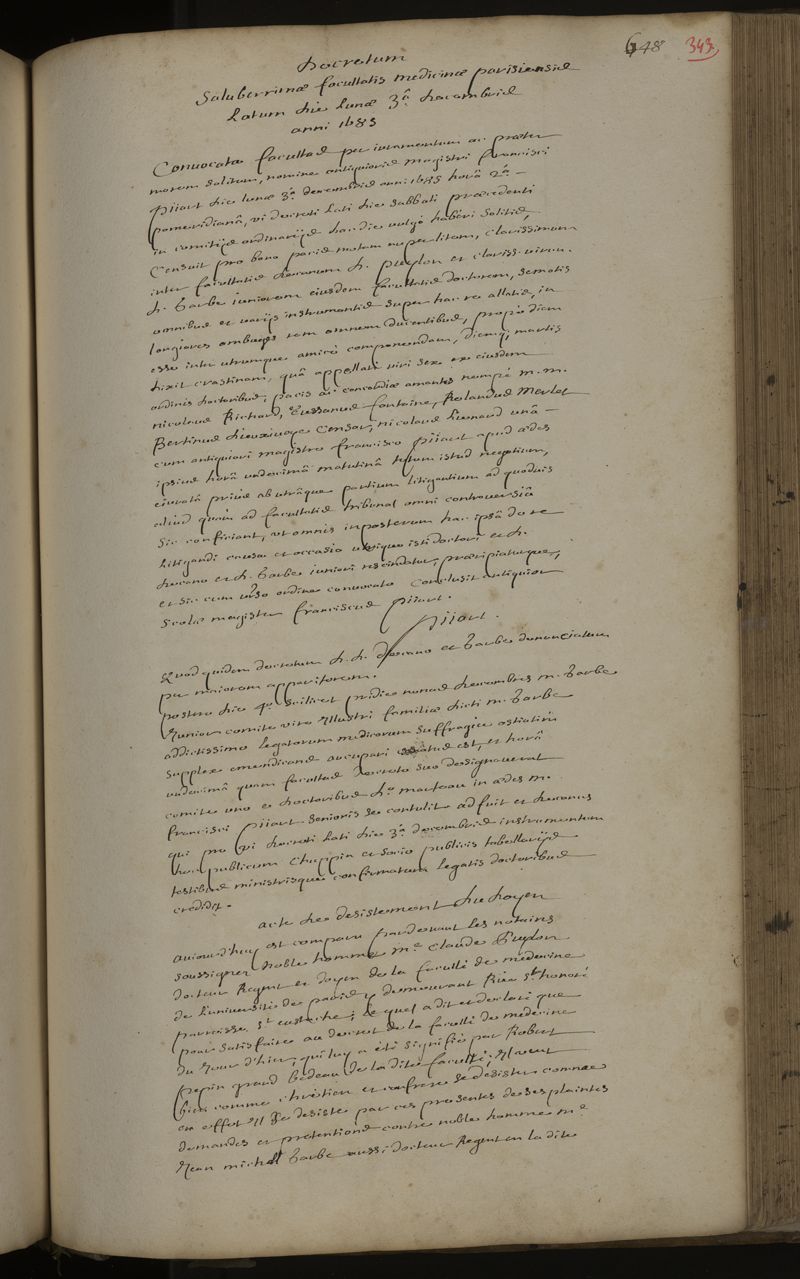 648 343.
Decretum
Saluberrimæ facultatis medicinæ parisiensis
Latum die Lunæ 3â. decembris
anni 1685
Convocata facultas per iuramentum ac præter
morem solitum, nomine antiquioris magistri francisci
Pijart die lunæ 3â. decembris anni 1685 horâ 2â.
pomeridianâ, vi decreti lati die sabbati præcedenti
in comitijs ordinarijs hac die vulgò haberi solitis,
Censuit pro bono pacis motam nuper litem, clarissimum
inter facultatis decanum D. Puylon et clariss. virum.
D. Barbe iuniorem eiusdem facultatis doctorem, semotis
omnibus et varijs instrumentis super hac re allatis, in
longiores ambages rem omnem ducentibus, propediem
esse inter utrumque amicè componendam, diemq; martis
dixit crastinam, quâ appellati viri sex ex eiusdem
ordinis doctoribus, pacis ac concordiæ amantes nempè m. m.
nicolaus Richard, Tussanus fontaine, Rolandus Merlet
Bertinus Dieuxivoye Censor, nicolaus Lienard unâ
cum antiquiori magistro francisco Pijart apud ædes
ipsius horâ undecimâ matutinâ totum istud negotium,
eiuratâ prius ab utrâque partium litigantium ad quodvis
aliud quam ad facultatis tribunal omni controversiâ
Sic conficiant, ut omnis inposterum hac ipsâ de re
Litigandi causa et occasio utrique isti doctori et D.
decano et D. Barbe iuniori rescindatur, præripiaturque,
et sic cum uno ordine convocato Conclusit antiquior
Scolæ magister franciscus Pijart.
Pijart.
Quod quidem decretum D. D. Decano et Barbe denunciatum
per maiorem apparitorem.
postero die 4â. scilicet pridie nonas decembris m. Barbe
Iunior comite viro Illustri familiæ dicti m. Barbe
addictissimo legatorum medicorum suffragia ostiatim
supplex emendicans aucupari est, et horâ
undecimâ quam facultas decreto suo designaverat
comite uno e doctoribus Dno. marteau in ædes m.
francisci Pijart senioris se contulit adfuit et decanus
qui pro vi decreti lati die 3â. decembris instrumentum
hoc publicum Chuppin et socio publicis tabellarijs
testibus ministrisque confirmatum legatis doctoribus
credidit.
acte de desistement du doyen
aujourd'huy est comparu pardevant les notaires
soussignez Noble homme Me. Claude Puylon
docteur Regent et doyen de la faculté de médecine
de l'université de paris y demeurant Rüe St. honoré
parroisse St. eustache; Lequel a dit et declaré que
pour satisfaire au decret de la faculté de médecine
du Jour d'hier, qui luy a été signifié par Robert
Pepin grand bedeau de la dite faculté; Il veut
bien comme chrétien et confrere se désister comme
en effet Il se desiste par ces presentes de ses plaintes
demandes et pretentions contre noble homme Me.
Jean michel Barbe aussi docteur Regent en la dite